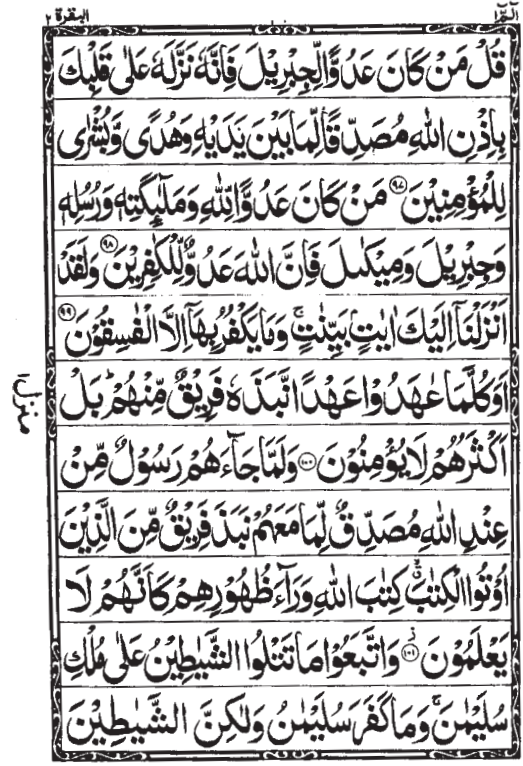 الٓمّٓ ١
البقرة ٢
قُلْ مَنْ كَانَ عَدُوًّا لِّجِبْرِيْلَ فَاِنَّهٗ نَزَّلَهٗ عَلٰى قَلْبِكَ
بِاِذْنِ اللّٰهِ مُصَدِّقًا لِّمَا بَيْنَ يَدَيْهِ وَهُدًى وَّبُشْرٰى
لِلْمُؤْمِنِيْنَ ۝٩٧ مَنْ كَانَ عَدُوًّا لِّلّٰهِ وَمَلٰٓئِكَتِهٖ وَرُسُلِهٖ
وَجِبْرِيْلَ وَمِيْكٰىلَ فَاِنَّ اللّٰهَ عَدُوٌّ لِّلْكٰفِرِيْنَ ۝٩٨ وَلَقَدْ
اَنْزَلْنَاۤ اِلَيْكَ اٰيٰتٍۭ بَيِّنٰتٍ ۚ وَمَا يَكْفُرُ بِهَاۤ اِلَّا الْفٰسِقُوْنَ ۝٩٩
اَوَكُلَّمَا عٰهَدُوْا عَهْدًا نَّبَذَهٗ فَرِيْقٌ مِّنْهُمْ ؕ بَلْ
اَكْثَرُهُمْ لَا يُؤْمِنُوْنَ ۝١٠٠ وَلَمَّا جَآءَهُمْ رَسُوْلٌ مِّنْ
عِنْدِ اللّٰهِ مُصَدِّقٌ لِّمَا مَعَهُمْ نَبَذَ فَرِيْقٌ مِّنَ الَّذِيْنَ
اُوْتُوا الْكِتٰبَ ۙ كِتٰبَ اللّٰهِ وَرَآءَ ظُهُوْرِهِمْ كَاَنَّهُمْ لَا
يَعْلَمُوْنَ ۝١٠١ ز وَاتَّبَعُوْا مَا تَتْلُوا الشَّيٰطِيْنُ عَلٰى مُلْكِ
سُلَيْمٰنَ ۚ وَمَا كَفَرَ سُلَيْمٰنُ وَلٰكِنَّ الشَّيٰطِيْنَ
منزل ١